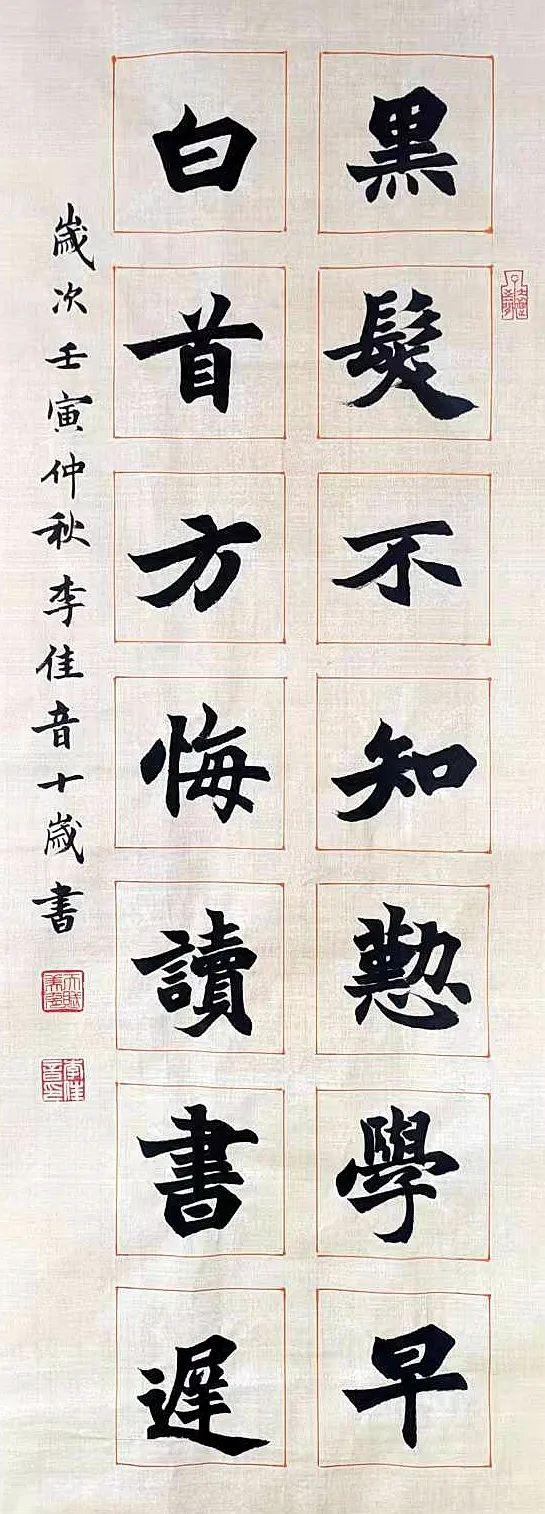 黑髮不知懃學早
白首方悔讀書遲
歲次壬寅仲秋李佳音十歲書
李佳音印